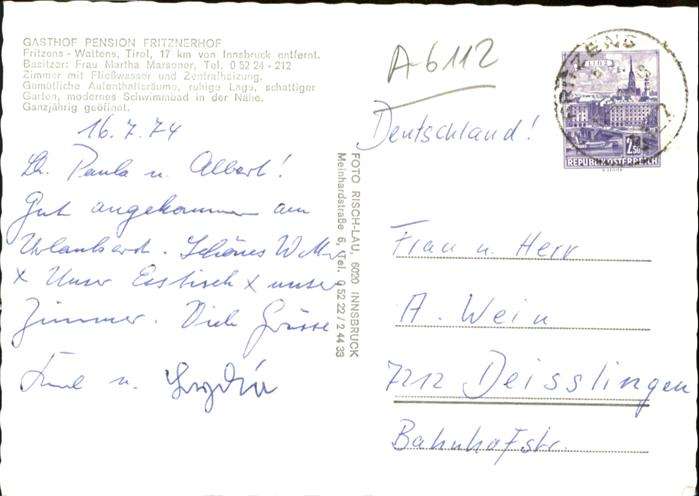 GASTHOF PENSION FRITZNERHOF
Fritzens-Wattens, Tirol, 17 km von Innsbruck entfernt.
Besitzer: Frau Martha Marsoner, Tel. 0 52 24 - 212
Zimmer mit Fließwasser und Zentralheizung.
Gemütliche Aufenthaltsräume, ruhige Lage, schattiger
Garten, modernes Schwimmbad in der Nähe.
Ganzjährig geöffnet.
16.7.74
Lb. Paula u. Albert!
Gut angekommen am
Urlaubsort. Schönes Wetter
x Unser Esstisch x unser
Zimmer. Viele Grüsse
u. Lydia
FOTO RISCH-LAU, 6020 INNSBRUCK
Meinhardstraße 6, Tel. 0 52 22 / 2 44 33
A6112
Deutschland!
LINZ
2.50
REPUBLIK ÖSTERREICH
FRITZENS
Frau u. Herr
A. Wein
7212 Deisslingen
Bahnhofstr.